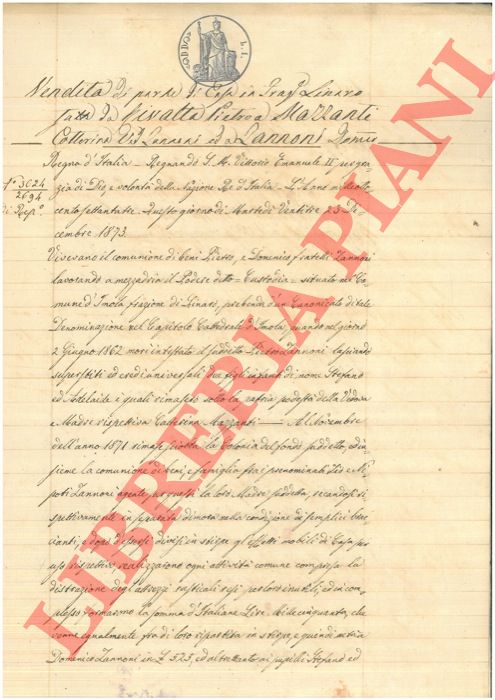 Vendita di parte di Casa in Fraz.e Linaro
fatta da Rivalta Pietro a Mazzanti
Catterina Vid. Zannoni ed a Zannoni Domco
Regno d'Italia = Regnando S. M. Vittorio Emanuele II per gra-
zia di Dio, e volontà della Nazione Re d'Italia = L'Anno mille otto-
cento settantatre. Questo giorno di Martedì Ventitre 23 Di-
cembre 1873.
N° 3024
2694
di Rep°
Vivevano in comunione di beni Pietro, e Domenico fratelli Zannoni
lavorando a mezzadria il Podere detto = Custodia = situato nel Co-
mune d'Imola frazione di Linaro, prebenda d'un Canonicato di tale
Denominazione nel Capitolo Cattedrale d'Imola, quando nel giorno
2 Giugno 1862 morì intestato il suddetto Pietro Zannoni lasciando
superstiti ed eredi universali due figli infanti di nome Stefano
ed Adelaide i quali rimasero sotto la patria podestà della Vedova
e Madre rispettiva Catterina Mazzanti = Al Novembre
dell'anno 1871 rimase sciolta la Colonia del fondo suddetto, ed in-
sieme la comunione di beni e famiglia fra i prenominati Zio e Ni-
poti Zannoni agente per questi la loro Madre suddetta, recandosi ri-
spettivamente in separata dimora nella condizione di semplici brac-
cianti, e dopo d'essersi divisi in stirpe gli effetti mobili di Casa per
uso rispettivo realizzarono ogni attività comune compresa la
distrazione degli attrezzi rusticali resi per loro inutili, ed in com-
plesso formarono la somma d'Italiane Lire Mille cinquanta, che
venne egualmente fra di loro ripartita in stirpe, e quindi metà a
Domenico Zannoni in £ 525, ed altrettanto ai pupilli Stefano ed
LIBRERIA PIANI